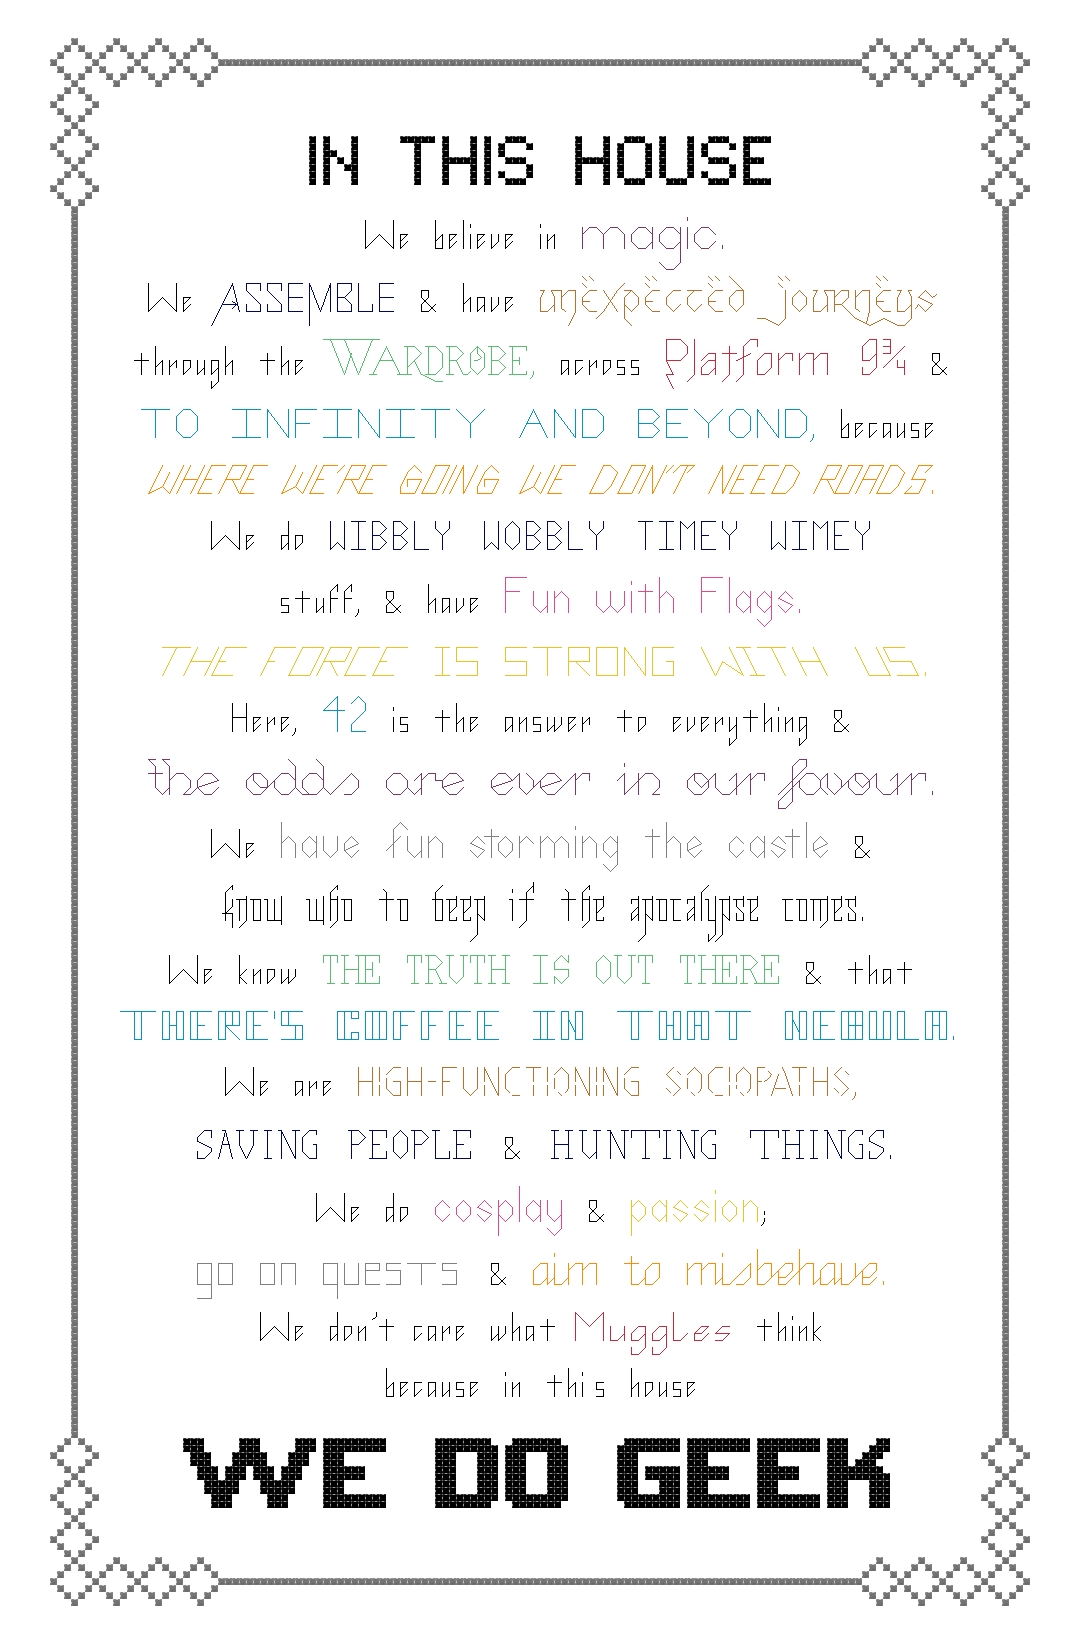 IN THIS HOUSE
We believe in magic.
We ASSEMBLE & have unexpected journeys
through the WARDROBE, across Platform 9¾ &
TO INFINITY AND BEYOND, because
WHERE WE'RE GOING WE DON'T NEED ROADS.
We do WIBBLY WOBBLY TIMEY WIMEY
stuff, & have Fun with Flags.
THE FORCE IS STRONG WITH US.
Here, 42 is the answer to everything &
the odds are ever in our favour.
We have fun storming the castle &
know who to beep if the apocalypse comes.
We know THE TRUTH IS OUT THERE & that
THERE'S COFFEE IN THAT NEBULA.
We are HIGH-FUNCTIONING SOCIOPATHS,
SAVING PEOPLE & HUNTING THINGS.
We do cosplay & passion;
go on quests & aim to misbehave.
We don't care what Muggles think
because in this house
WE DO GEEK